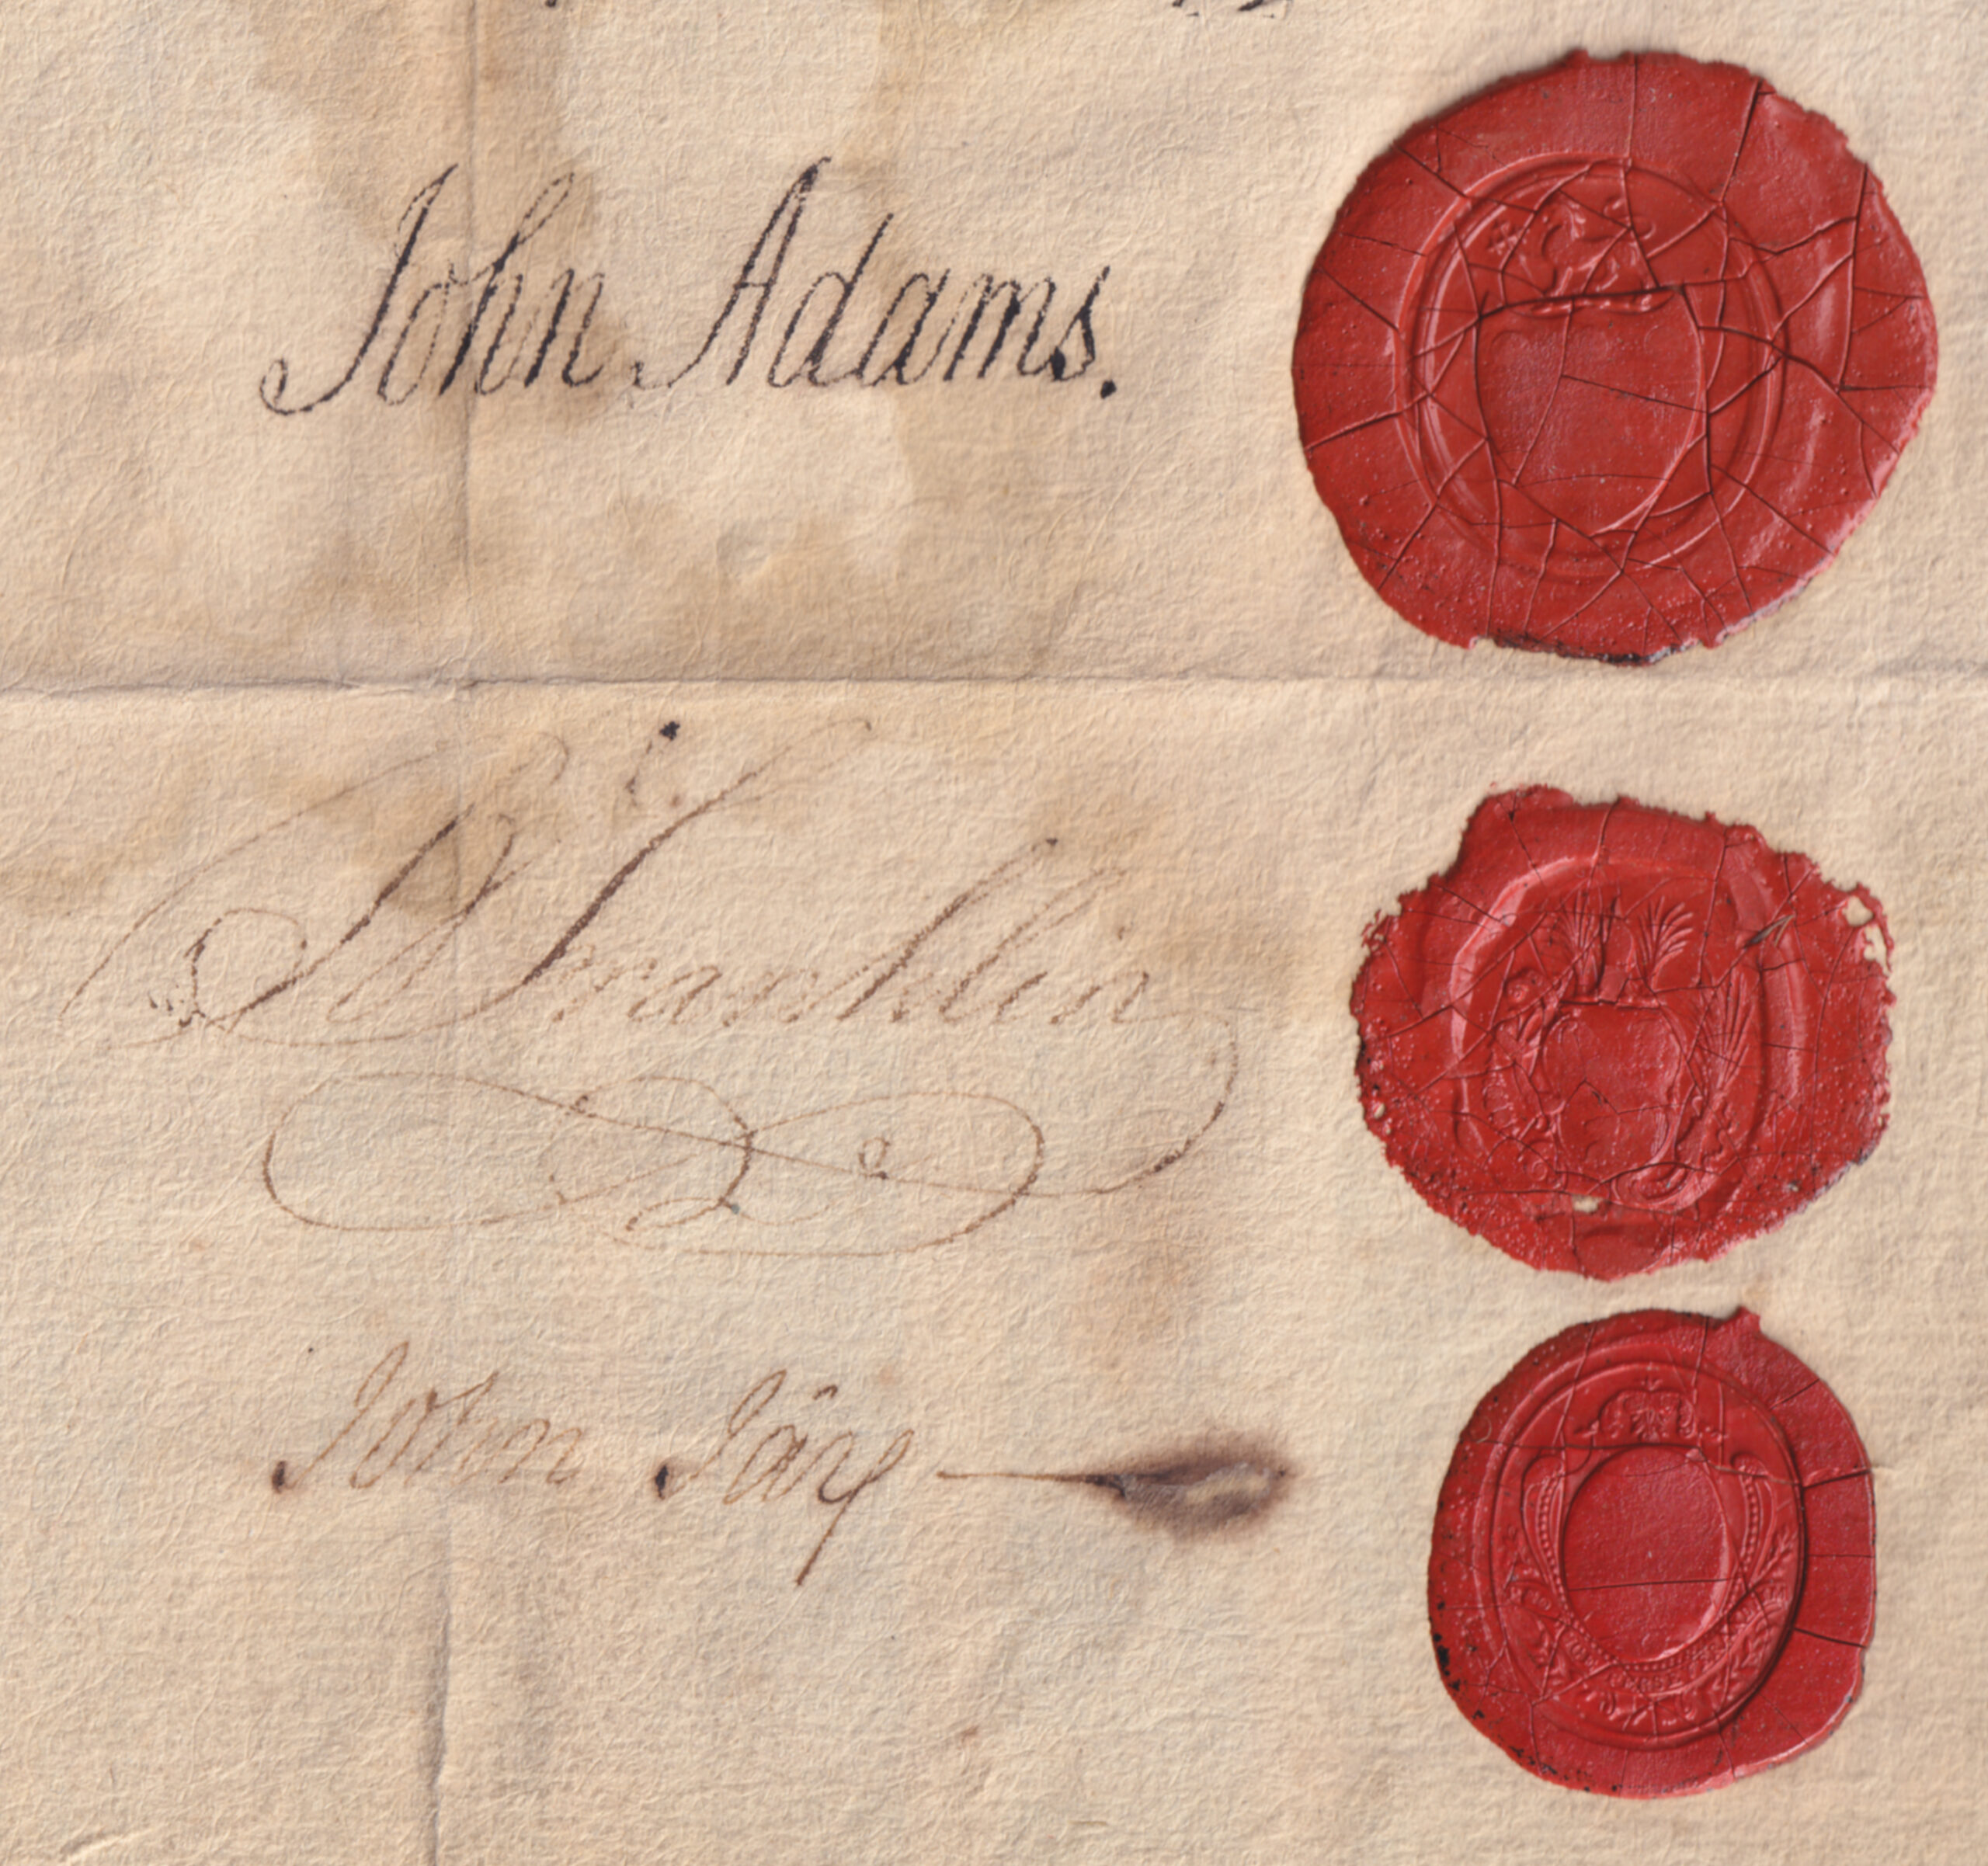 John Adams.
B Franklin
John Jay